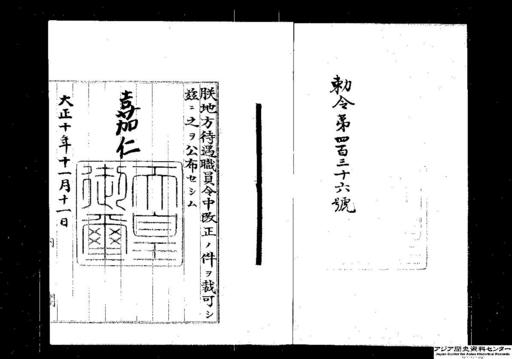 勅令第四百三十六號
朕地方待遇職員令中改正ノ件ヲ裁可シ
茲ニ之ヲ公布セシム
嘉仁
天皇御璽
大正十年十一月十一日
内閣
アジア歴史資料センター
Japan Center for Asian Historical Records